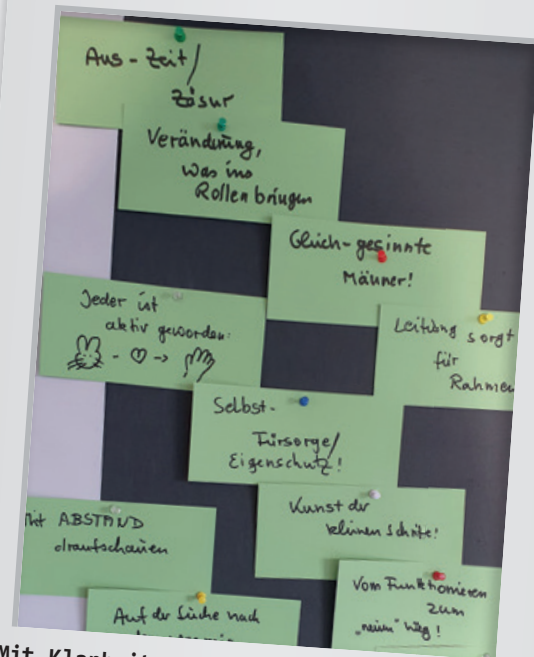 Aus-Zeit/
Zäsur
Veränderung,
was ins
Rollen bringen
Gleich-gesinnte
Männer!
Jeder ist
aktiv geworden:
Leitung sorgt
für
Rahmen
Selbst-
Fürsorge/
Eigenschutz!
Kunst der
kleinen Schritte!
Mit ABSTAND
draufschauen
Vom Funktionieren
zum
"neuen" Weg!
Auf der Suche nach
Mit